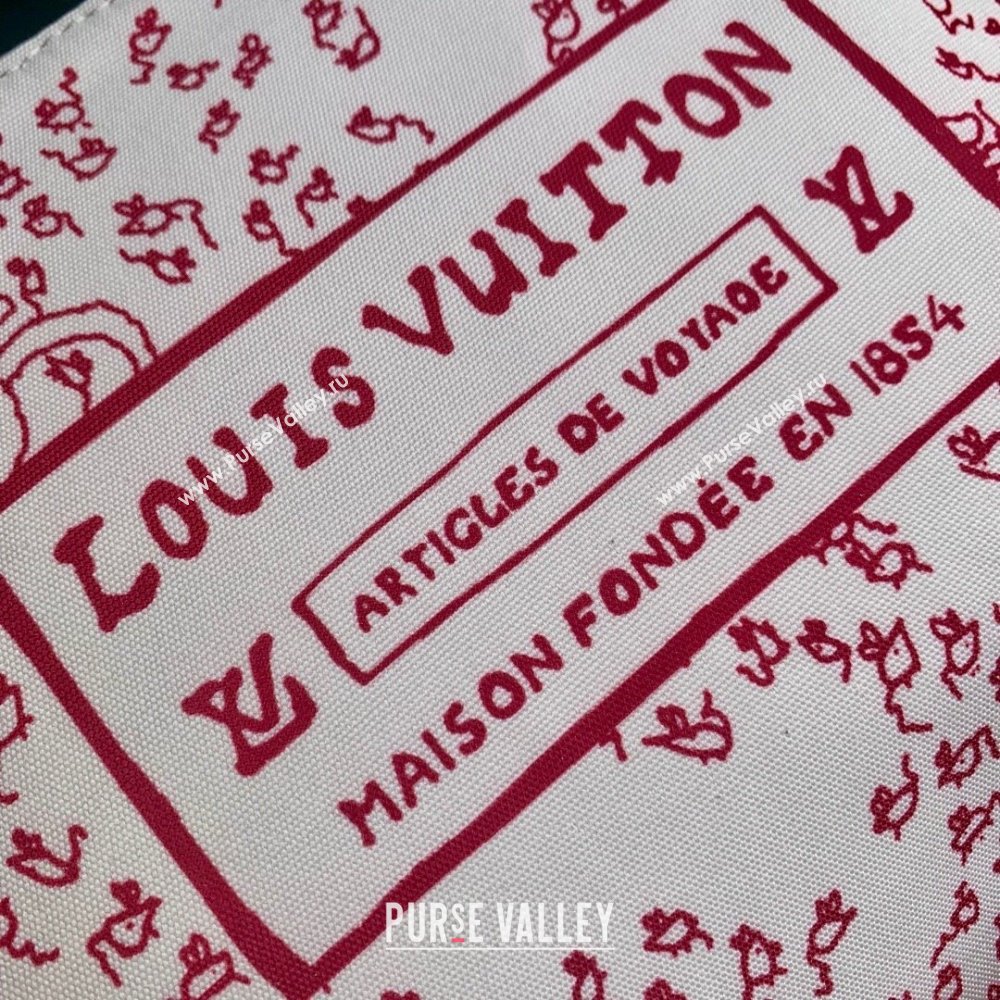 LOUIS VUITTON
LV ARTICLES DE VOYAGE LV
MAISON FONDÉE EN 1854
www.PurseValley.ru
www.PurseValley.ru
PURSE VALLEY